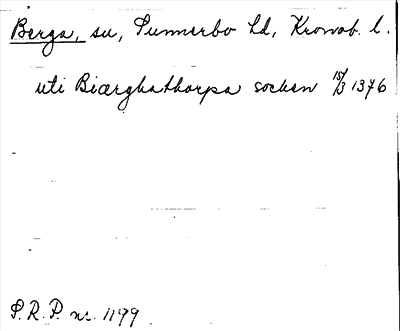 Berga, su, Sunnerbo hd, Kronob. l.
uti Biærghathorpa socken 15/3 1376
S.R.P. nr. 1199